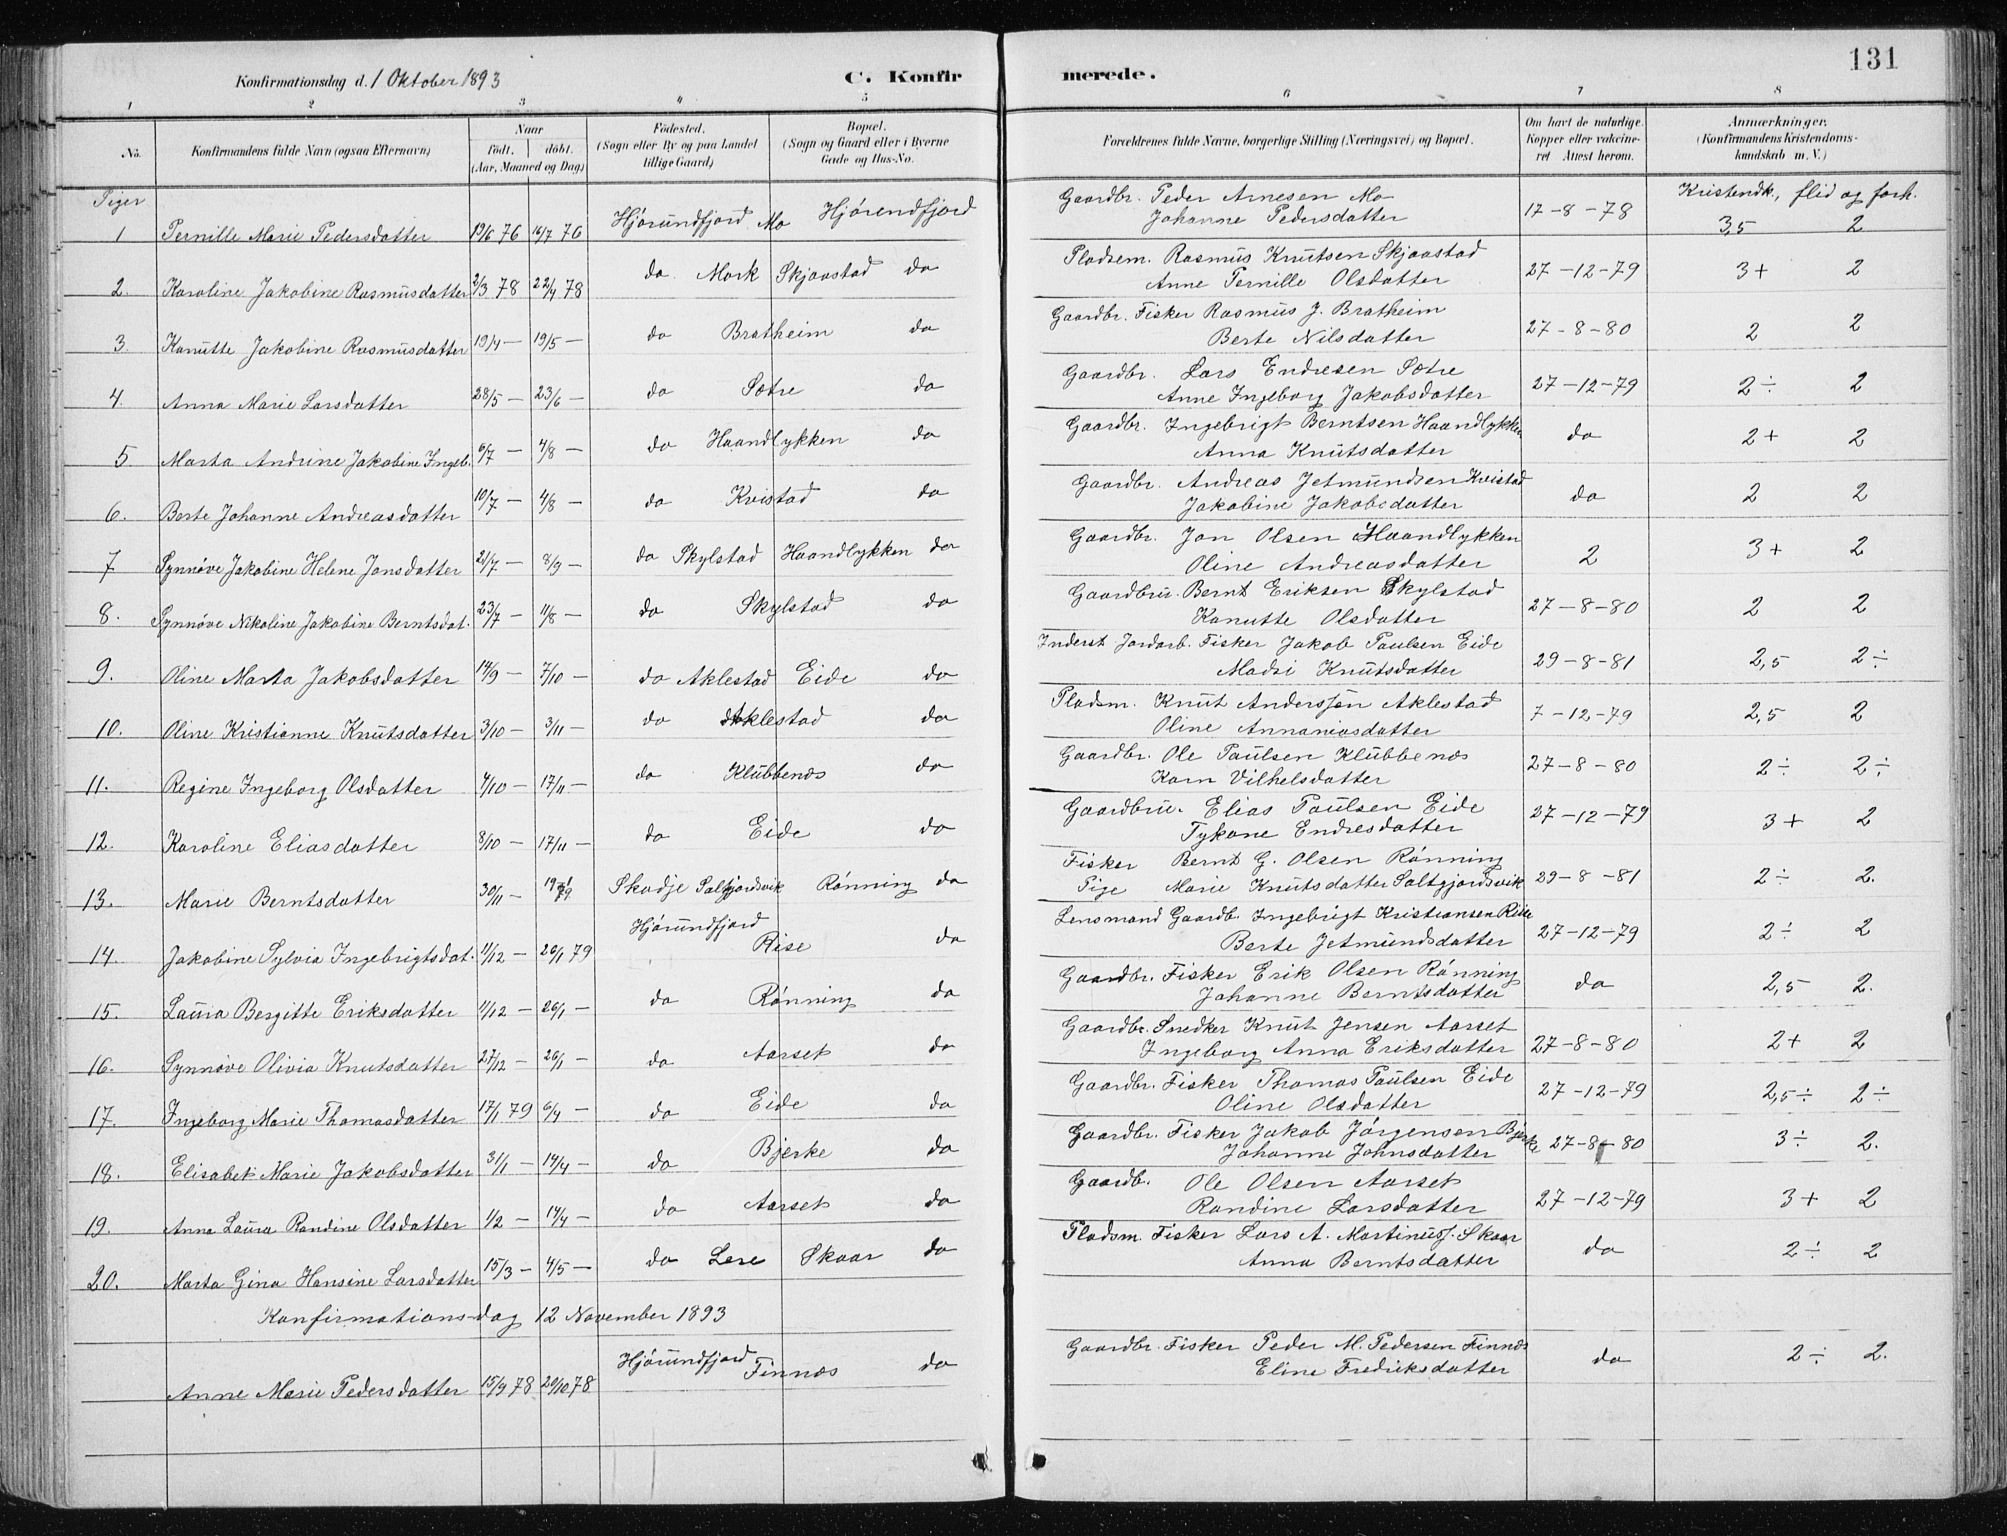 131
Konfirmationsdag d. 1 Oktober 1893 C. Konfirmerede.
1 2 3 4 5 6 7 8
No. Konfirmandens fulde Navn (ogsaa Efternavn) Naar födt. döbt. (Aar, Maaned og Dag) Födested. (Sogn eller By og paa Landet tillige Gaard) Bopæl. (Sogn og Gaard eller i Byerne Gade og Hus-No. Forældrenes fulde Navne, borgerlige Stilling (Næringsvei) og Bopæl. Om havt de naturlige Kopper eller vakcineret Attest herom. Anmærkninger. (Konfirmandens Kristendomskundskab m. V.)
Piger Kristendk., flid og forh.
1 Pernille Marie Pedersdatter 19/6 76 16/7 76 Hjørundfjord Mo Hjørendfjord Gaardbr. Peder Arnesen Mo 17-8-78 3,5 2
Johanne Pedersdatter
2. Karoline Jakobine Rasmusdatter 2/3 78 22/4 78 do Mork Skjaastad do Pladsem. Rasmus Knutsen Skjaastad 27-12-79 3+ 2
Anne Pernille Olsdatter
3. Kanutte Jakobine Rasmusdatter 19/4 — 19/5 — do Bratheim do Gaardbr. Fisker Rasmus J. Bratheim 27-8-80 2 2
Berte Nilsdatter
4. Anna Marie Larsdatter 28/5 — 23/6 — do Sætre do Gaardbr. Lars Endresen Sætre 27-12-79 2÷ 2
Anne Ingeborg Jakobsdatter
5 Marta Andrine Jakobine Ingeb. 6/7 — 4/8 — do Haandlykken do Gaardbr. Ingebrigt Berntsen Haandlykken do 2+ 2
Anna Knutsdatter
6. Berte Johanne Andreasdatter 10/7 — 4/8 — do Kvistad do Gaardbr. Andreas Jetmundsen Kvistad do 2 2
Jakobine Jakobsdatter
7 Synnøve Jakobine Helene Jonsdatter 21/7 — 8/9 — do Skylstad Haandlykken do Gaardbr. Jon Olsen Haandlykken 2 3+ 2
Oline Andreasdatter
8. Synnøve Nikoline Jakobine Berntsdat. 23/7 — 11/8 — do Skylstad do Gaardbru. Bernt Eriksen Skylstad 27-8-80 2 2
Kanutte Olsdatter
9. Oline Marta Jakobsdatter 14/9 — 7/10 — do Aklestad Eide do Inderst Jordarb. Fisker Jakob Paulsen Eide 29-8-81 2,5 2÷
Madsi Knutsdatter
10. Oline Kristianne Knutsdatter 3/10 — 3/11 — do Aklestad do Pladsm. Knut Anderssøn Aklestad 7-12-79 2,5 2
Oline Annaniasdatter
11. Regine Ingeborg Olsdatter 4/10 — 17/11 — do Klubbenes do Gaardbr. Ole Paulsen Klubbenes 27-8-80 2÷ 2÷
Karn Vilhelsdatter
12. Karoline Eliasdatter 8/10 — 17/11 — do Eide do Gaardbru. Elias Paulsen Eide 27-12-79 3+ 2
Tykane Endresdatter
13. Marie Berntsdatter 30/11 — 19/1 79 Skodje Saltfjordsvik Rønning do Fisker Bernt G. Olsen Rønning 29-8-81 2÷ 2.
Pige Marie Knutsdatter Saltgjordsvik
14. Jakobine Sylvia Ingebrigtsdat. 1/12 — 26/1 79 Hjørundfjord Rise do Lensmand Gaardb. Ingebrigt Kristiansen Rise 27-12-79 2÷ 2
Berte Jetmundsdatter
15. Laura Bergitte Eriksdatter 1/12 — 26/1 — do Rønning do Gaardbr. Fisker Erik Olsen Rønning do 2,5 2.
Johanne Berntsdatter
16. Synnøve Olivia Knutsdatter 27/12 — 26/1 — do Aarset do Gaardbr. Snedker Knut Jensen Aarset 27-8-80 2+ 2
Ingeborg Anna Eriksdatter
17. Ingeborg Marie Thomasdatter 17/1 79 6/4 — do Eide do Gaardbr. Fisker Thomas Paulsen Eide 27-12-79 2,5÷ 2÷
Oline Olsdatter
18. Elisabet Marie Jakobsdatter 31/1 — 14/4 — do Bjerke do Gaardbr. Fisker Jakob Jørgensen Bjerke 27-8-80 3÷ 2.
Johanne Johnsdatter
19. Anna Laura Randine Olsdatter 1/2 — 14/4 — do Aarset do Gaardb. Ole Olsen Aarset 27-12-79 3+ 2
Randine Larsdatter
20. Marta Gina Hansine Larsdatter 15/3 — 4/5 — do Lere Skaar do Pladsm. Fisker Lars A. Martinuss. Skaar do 2÷ 2
Anna Berntsdatter
Konfirmations-dag 12 November 1893
Anne Marie Pedersdatter 15/9 78 20/10 78 Hjørundfjord Finnes do Gaardbr. Fisker Peder M. Pedersen Finnes do 2÷ 2.
Eline Fredriksdatter